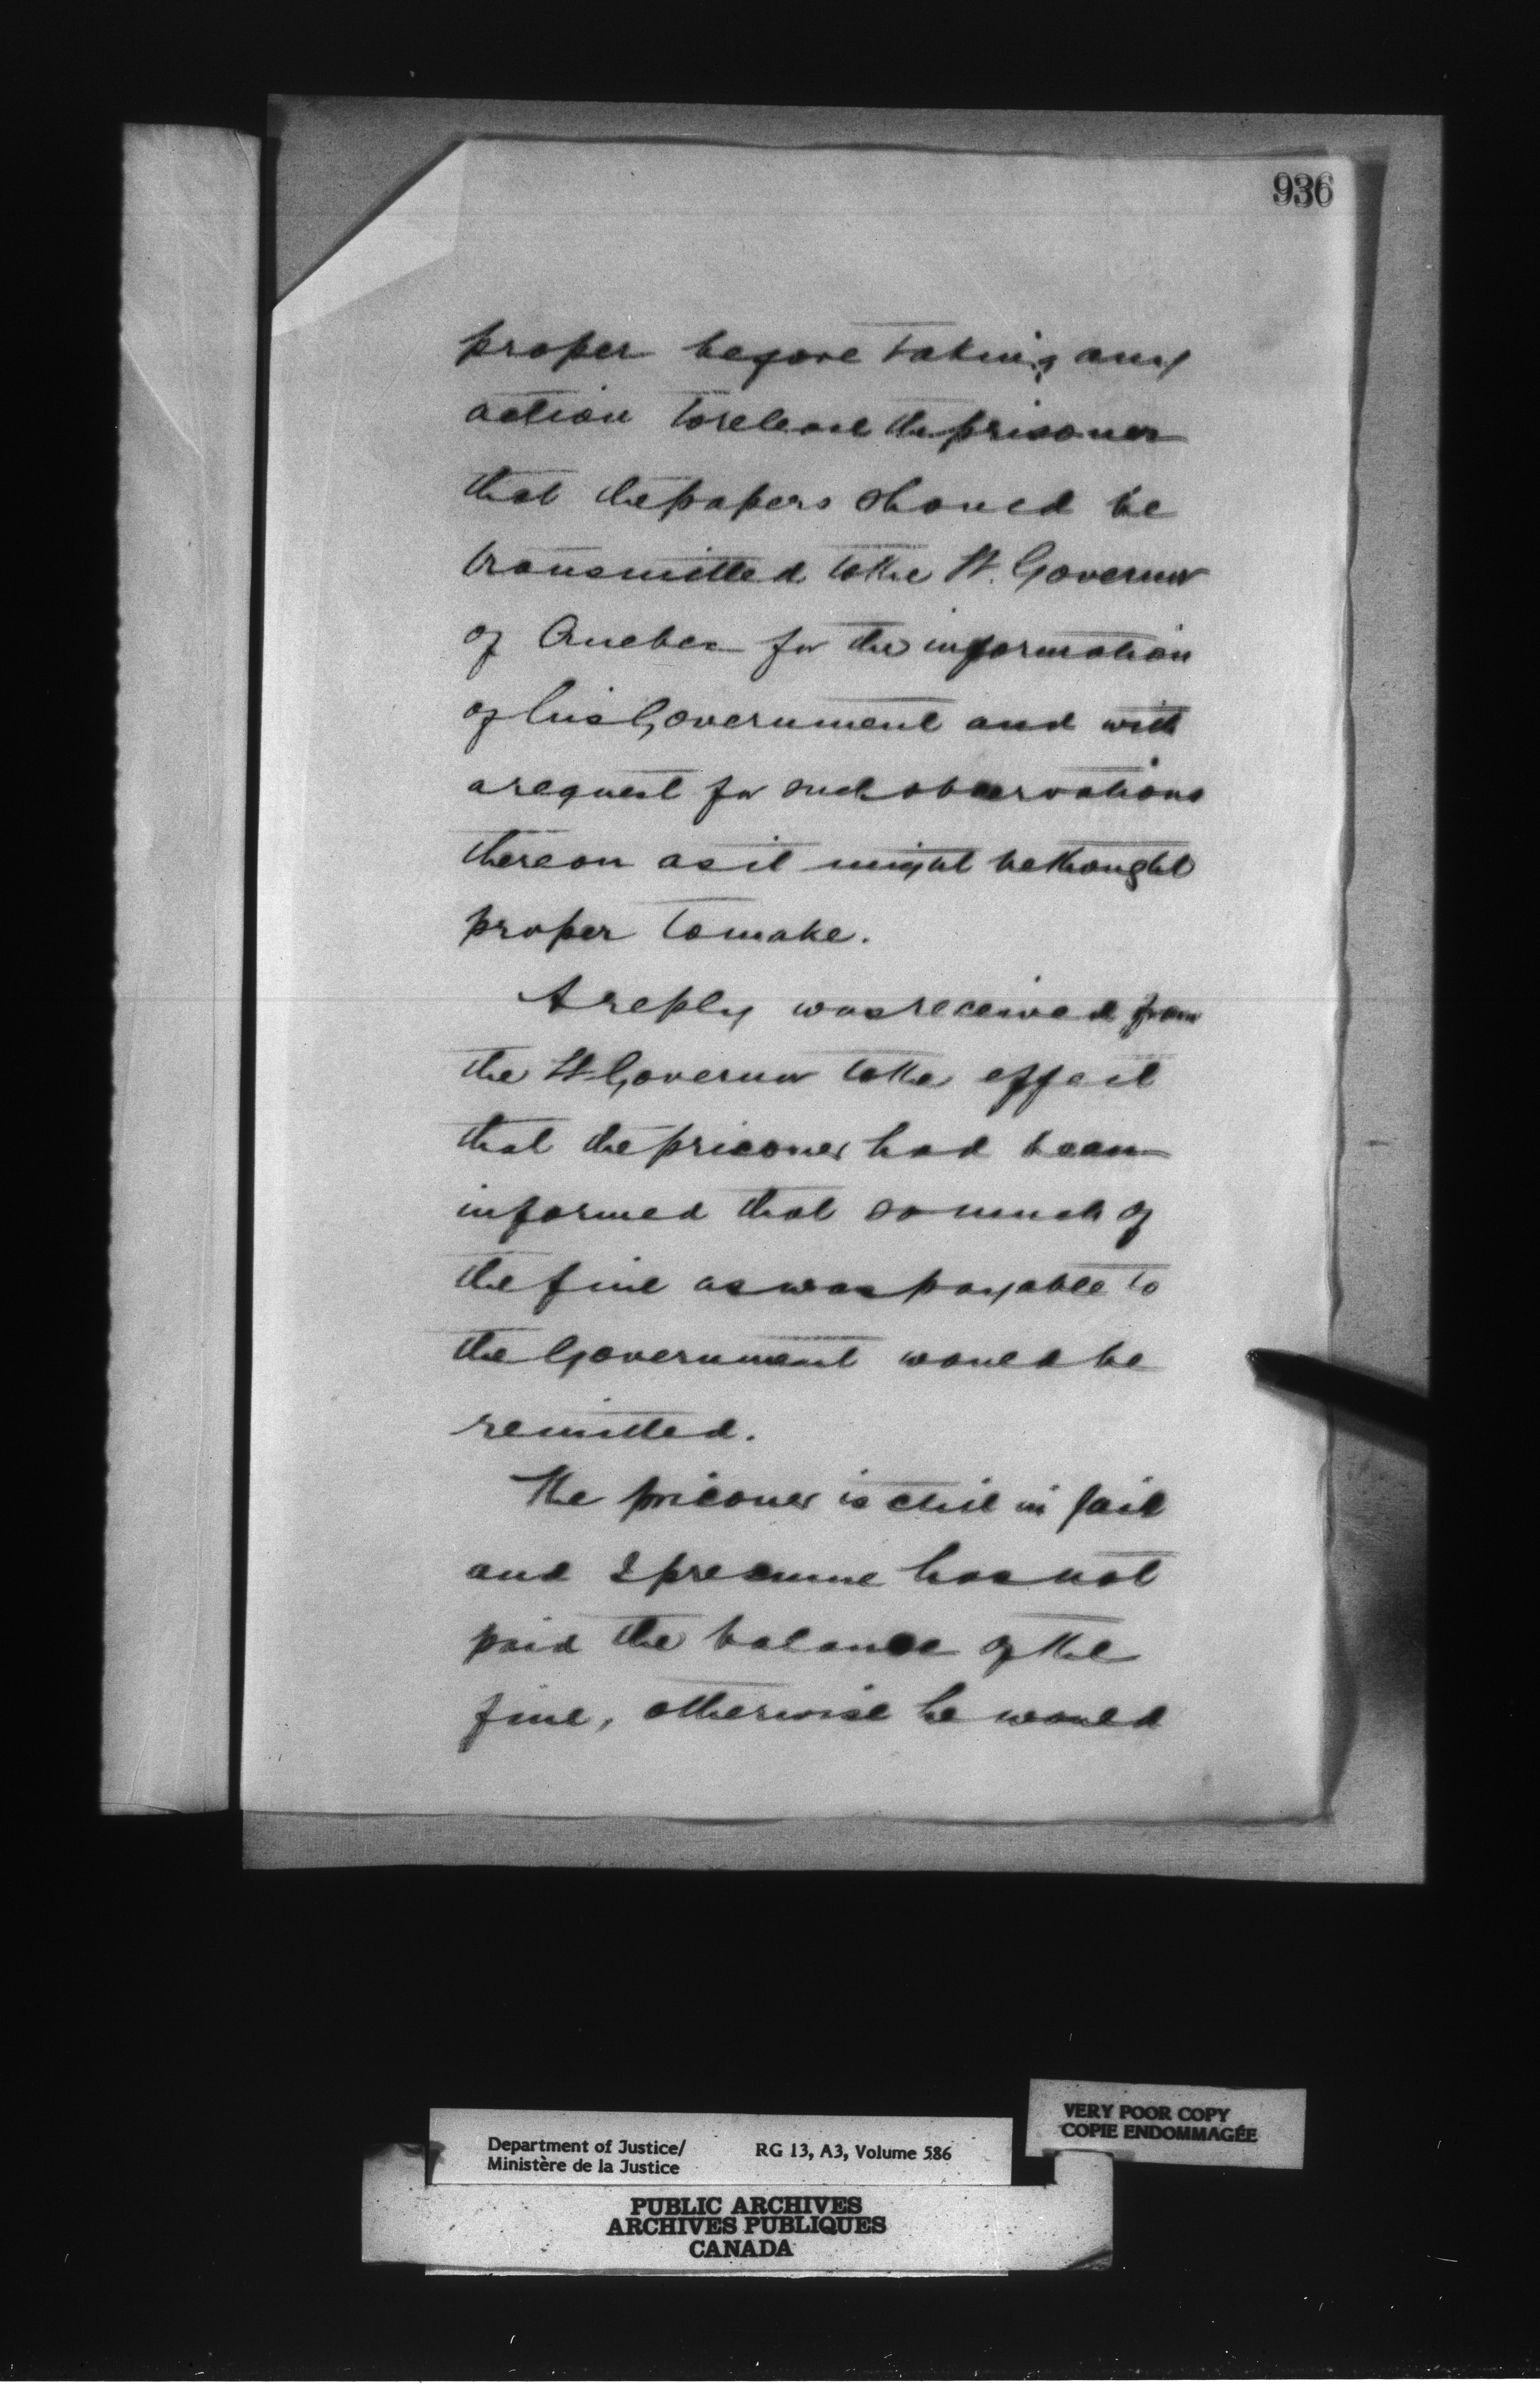 936
proper before taking any
action to release the prisoner
that the papers should be
transmitted to the Lt. Governor
of Quebec for the information
of his Government and with
a request for such observations
thereon as it might be thought
proper to make.
A reply was received from
the Lt Governor to the effect
that the prisoner had been
informed that so much of
the fine as was payable to
the Government would be
remitted.
The prisoner is still in jail
and I presume has not
paid the balance of the
fine, otherwise he would
VERY POOR COPY
COPIE ENDOMMAGÉE
Department of Justice/ RG 13, A3, Volume 586
Ministère de la Justice
PUBLIC ARCHIVES
ARCHIVES PUBLIQUES
CANADA